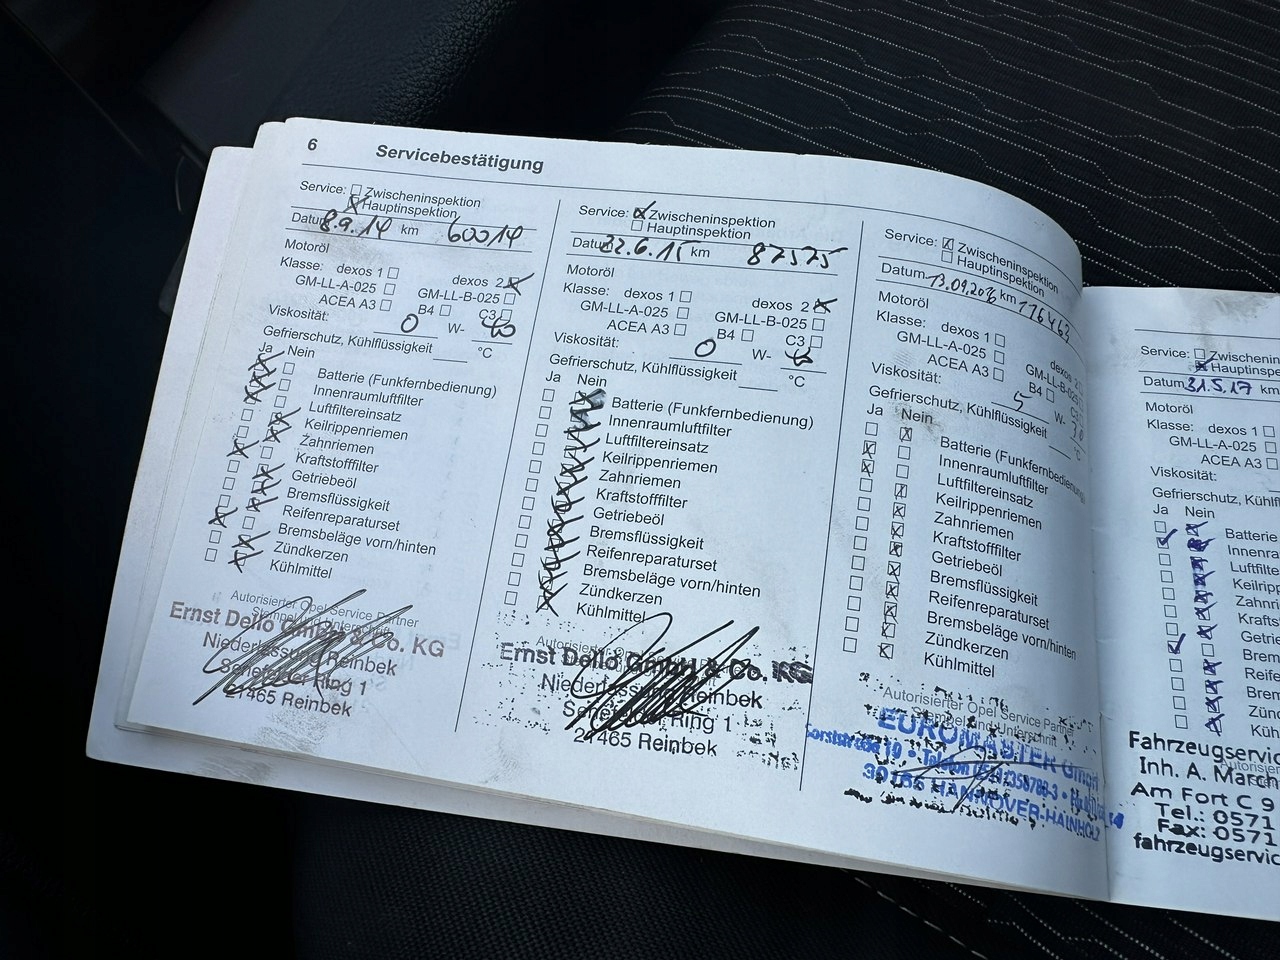 6 Servicebestätigung
Service: Zwischeninspektion
Hauptinspektion
Datum 8.9.14 km 60014
Motoröl
Klasse: dexos 1 dexos 2
GM-LL-A-025 GM-LL-B-025
ACEA A3 B4 C3
Viskosität: 0 W-
Gefrierschutz, Kühlflüssigkeit °C
Ja Nein
Batterie (Funkfernbedienung)
Innenraumluftfilter
Luftfiltereinsatz
Keilrippenriemen
Zahnriemen
Kraftstofffilter
Getriebeöl
Bremsflüssigkeit
Reifenreparaturset
Bremsbeläge vorn/hinten
Zündkerzen
Kühlmittel
Autorisierter Opel Service Partner
Stempel und Unterschrift
Ernst Dello GmbH & Co. KG
Niederlassung Reinbek
Ring 1
21465 Reinbek
Service: Zwischeninspektion
Hauptinspektion
Datum 22.6.15 km 87575
Motoröl
Klasse: dexos 1 dexos 2
GM-LL-A-025 GM-LL-B-025
ACEA A3 B4 C3
Viskosität: 0 W-
Gefrierschutz, Kühlflüssigkeit °C
Ja Nein
Batterie (Funkfernbedienung)
Innenraumluftfilter
Luftfiltereinsatz
Keilrippenriemen
Zahnriemen
Kraftstofffilter
Getriebeöl
Bremsflüssigkeit
Reifenreparaturset
Bremsbeläge vorn/hinten
Zündkerzen
Kühlmittel
Ernst Dello GmbH & Co. KG
Niederlassung Reinbek
Ring 1
21465 Reinbek
Service: Zwischeninspektion
Hauptinspektion
Datum 13.09.2016 km 116463
Motoröl
Klasse: dexos 1 dexos 2
GM-LL-A-025 GM-LL-B-025
ACEA A3 B4 C3
Viskosität: 5 W-
Gefrierschutz, Kühlflüssigkeit °C
Ja Nein
Batterie (Funkfernbedienung)
Innenraumluftfilter
Luftfiltereinsatz
Keilrippenriemen
Zahnriemen
Kraftstofffilter
Getriebeöl
Bremsflüssigkeit
Reifenreparaturset
Bremsbeläge vorn/hinten
Zündkerzen
Kühlmittel
Autorisierter Opel Service Partner
Stempel und Unterschrift
EUROMASTER GmbH
30165 HANNOVER-HAINHOLZ
Service: Zwischenin
Hauptinspe
Datum 31.5.17 km
Motoröl
Klasse: dexos 1
GM-LL-A-025
ACEA A3
Viskosität:
Gefrierschutz, Kühlfl
Ja Nein
Batterie
Innenra
Luftfilte
Keilripp
Zahnri
Krafts
Getri
Brem
Reife
Brem
Zünd
Küh
Fahrzeugservic
Inh. A. March
Am Fort C 9
Tel.: 0571
Fax: 0571
fahrzeugservic